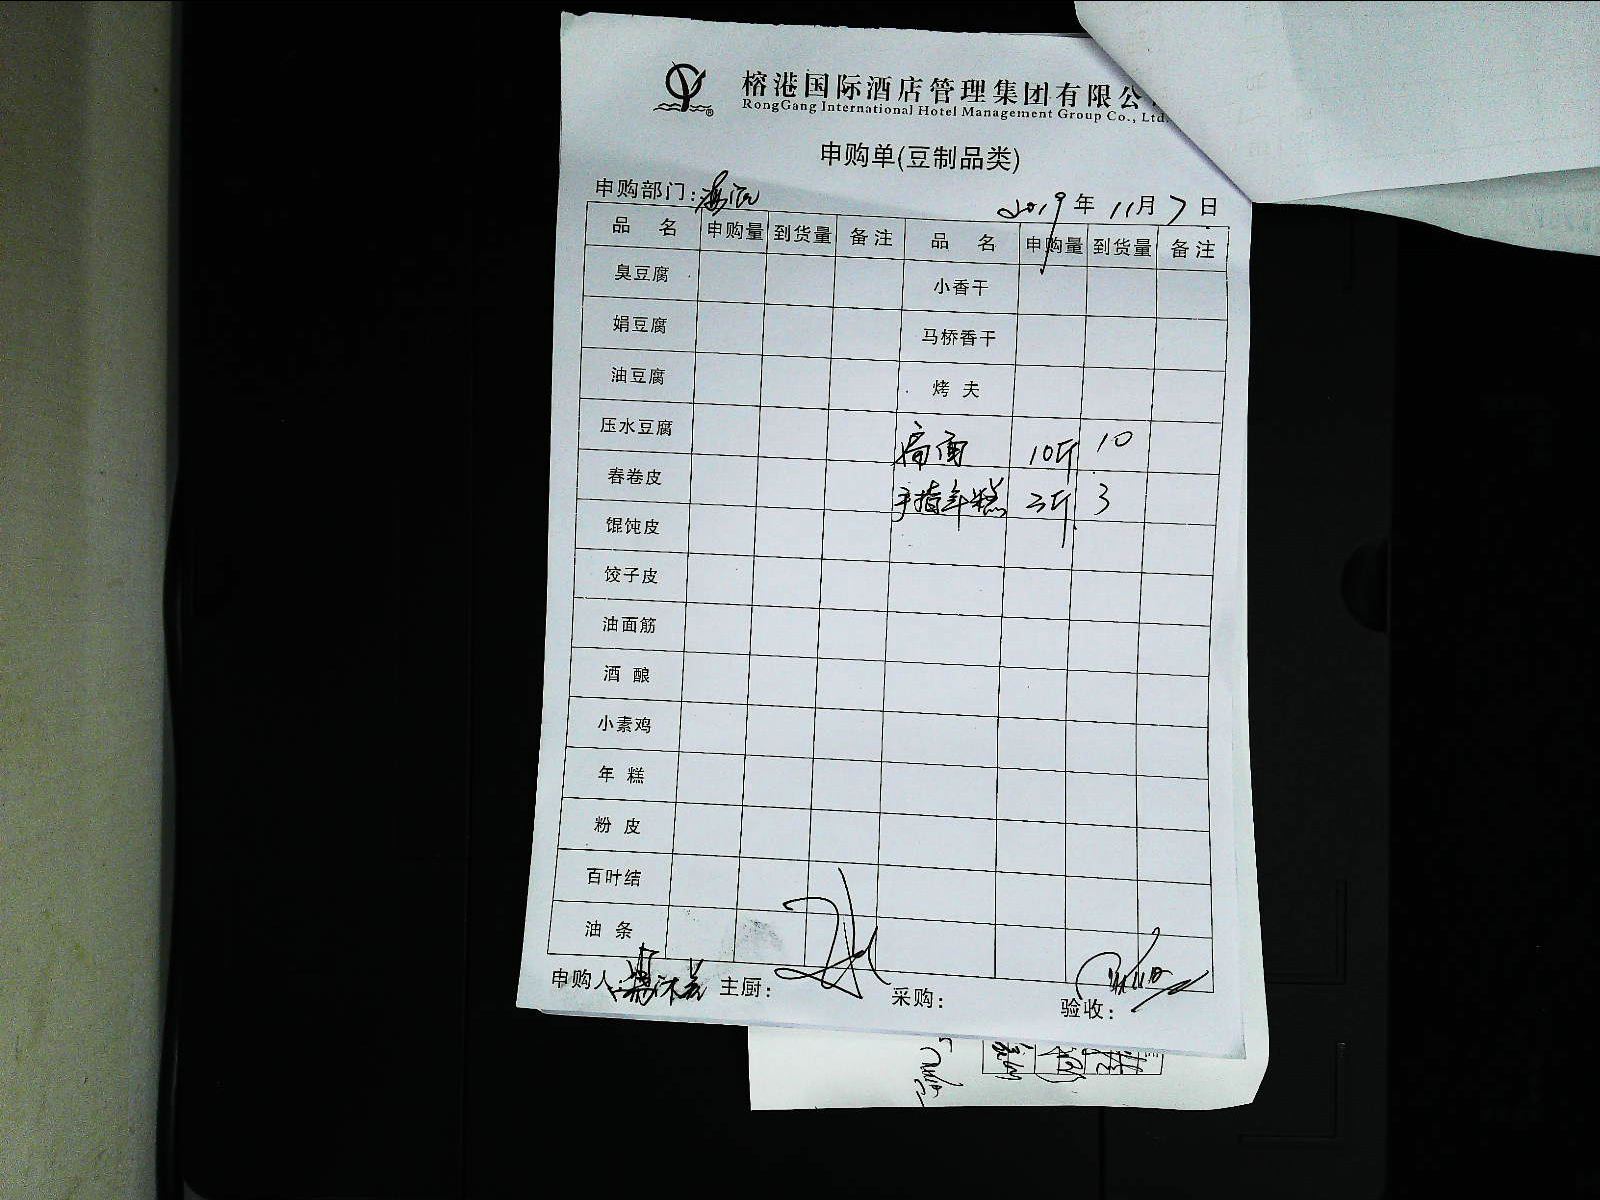 榕港国际酒店管理集团有限公
RongGang International Hotel Management Group Co., Ltd.
申购单(豆制品类)
申购部门:
2019年11月7日
品名 申购量 到货量 备注 品名 申购量 到货量 备注
臭豆腐 小香干
娟豆腐 马桥香干
油豆腐 烤夫
压水豆腐 10斤 10
春卷皮 手指年糕 3斤 3
馄饨皮
饺子皮
油面筋
酒酿
小素鸡
年糕
粉皮
百叶结
油条
申购人: 主厨: 采购: 验收: